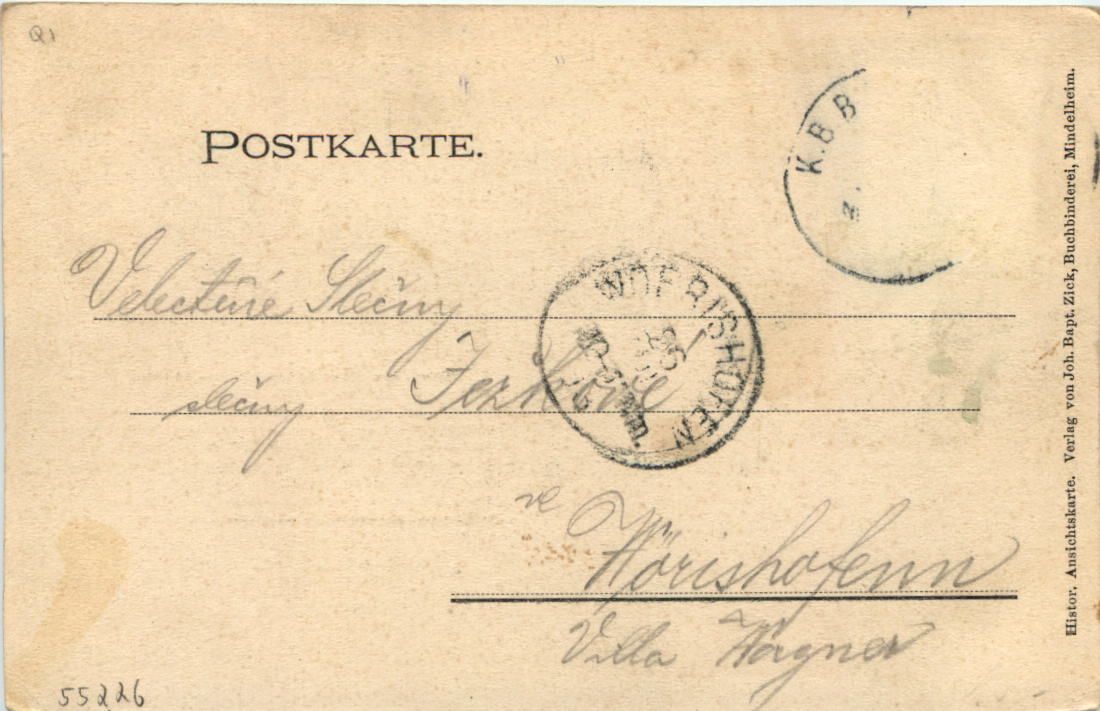 Q1
POSTKARTE.
K.B.B
WÖERISHOFEN
Velectěné Slečny
slečny
ve
Wörishofenn
Villa Wagner
55226
Histor. Ansichtskarte. Verlag von Joh. Bapt. Zick, Buchbinderei, Mindelheim.